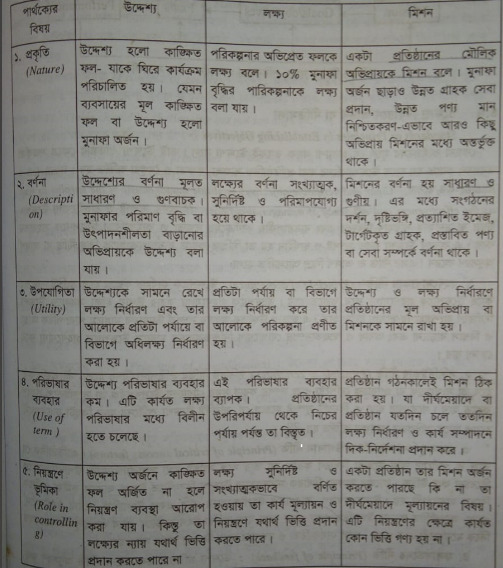 পার্থক্যের
বিষয়
উদ্দেশ্য
লক্ষ্য
মিশন
১. প্রকৃতি
(Nature)
উদ্দেশ্য হলো কাঙ্ক্ষিত
ফল- যাকে ঘিরে কার্যক্রম
পরিচালিত হয়। যেমন
ব্যবসায়ের মূল কাঙ্ক্ষিত
ফল বা উদ্দেশ্য হলো
মুনাফা অর্জন।
পরিকল্পনার অভিপ্রেত ফলকে
লক্ষ্য বলে। ১০% মুনাফা
বৃদ্ধির পারিকল্পনাকে লক্ষ্য
বলা যায়।
একটা প্রতিষ্ঠানের মৌলিক
অভিপ্রায়কে মিশন বলে। মুনাফা
অর্জন ছাড়াও উন্নত গ্রাহক সেবা
প্রদান, উন্নত পণ্য মান
নিশ্চিতকরণ-এভাবে আরও কিছু
অভিপ্রায় মিশনের মধ্যে অন্তর্ভুক্ত
থাকে।
২. বর্ণনা
(Descripti
on)
উদ্দেশ্যের বর্ণনা মূলত
সাধারণ ও গুণবাচক।
মুনাফার পরিমাণ বৃদ্ধি বা
উৎপাদনশীলতা বাড়ানোর
অভিপ্রায়কে উদ্দেশ্য বলা
যায়।
লক্ষ্যের বর্ণনা সংখ্যাত্মক,
সুনির্দিষ্ট ও পরিমাপযোগ্য
হয়ে থাকে।
মিশনের বর্ণনা হয় সাধারণ ও
গুণীয়। এর মধ্যে সংগঠনের
দর্শন, দৃষ্টিভঙ্গি, প্রত্যাশিত ইমেজ,
টার্গেটকৃত গ্রাহক, প্রস্তাবিত পণ্য
বা সেবা সম্পর্কে বর্ণনা থাকে।
৩. উপযোগিতা
(Utility)
উদ্দেশ্যকে সামনে রেখে
লক্ষ্য নির্ধারণ এবং তার
আলোকে প্রতিটা পর্যায়ে বা
বিভাগে অধিলক্ষ্য নির্ধারণ
করা হয়।
প্রতিটা পর্যায় বা বিভাগে
লক্ষ্য নির্ধারণ করে তার
আলোকে পরিকল্পনা প্রণীত
হয়।
উদ্দেশ্য ও লক্ষ্য নির্ধারণে
প্রতিষ্ঠানের মূল অভিপ্রায় বা
মিশনকে সামনে রাখা হয়।
৪. পরিভাষার
ব্যবহার
(Use of
term )
উদ্দেশ্য পরিভাষার ব্যবহার
কম। এটি কার্যত লক্ষ্য
পরিভাষার মধ্যে বিলীন
হতে চলেছে।
এই পরিভাষার ব্যবহার
ব্যাপক। প্রতিষ্ঠানের
উপরিপর্যায় থেকে নিচের
পর্যায় পর্যন্ত তা বিস্তৃত।
প্রতিষ্ঠান গঠনকালেই মিশন ঠিক
করা হয়। যা দীর্ঘমেয়াদে বা
প্রতিষ্ঠান যতদিন চলে ততদিন
লক্ষ্য নির্ধারণ ও কার্য সম্পাদনে
দিক-নির্দেশনা প্রদান করে।
৫. নিয়ন্ত্রণে
ভূমিকা
(Role in
controllin
g)
উদ্দেশ্য অর্জনে কাঙ্ক্ষিত
ফল অর্জিত না হলে
নিয়ন্ত্রণ ব্যবস্থা আরোপ
করা যায়। কিন্তু তা
লক্ষ্যের ন্যায় যথার্থ ভিত্তি
প্রদান করতে পারে না
লক্ষ্য সুনির্দিষ্ট ও
সংখ্যাত্মকভাবে বর্ণিত
হওয়ায় তা কার্য মূল্যায়ন ও
নিয়ন্ত্রণে যথার্থ ভিত্তি প্রদান
করতে পারে।
একটা প্রতিষ্ঠান তার মিশন অর্জন
করতে পারছে কি না তা
দীর্ঘমেয়াদে মূল্যায়নের বিষয়।
এটি নিয়ন্ত্রণের ক্ষেত্রে কার্যত
কোন ভিত্তি গণ্য হয় না।